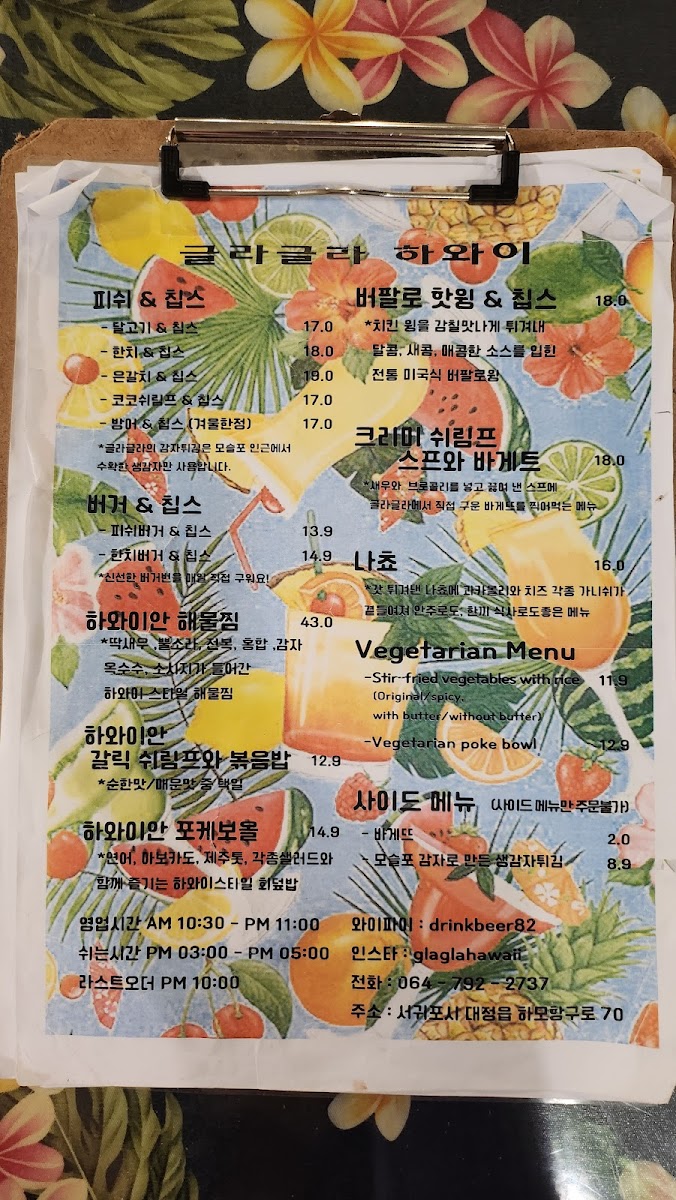 글라글라 하와이
피쉬 & 칩스
- 달고기 & 칩스 17.0
- 한치 & 칩스 18.0
- 은갈치 & 칩스 19.0
- 코코쉬림프 & 칩스 17.0
- 방어 & 칩스 (겨울한정) 17.0
*글라글라의 감자튀김은 모슬포 인근에서
수확한 생감자만 사용합니다.
버거 & 칩스
- 피쉬버거 & 칩스 13.9
- 한치버거 & 칩스 14.9
*신선한 버거번을 매일 직접 구워요!
하와이안 해물찜 43.0
*딱새우 ,뿔소라, 전복, 홍합 ,감자
옥수수, 소시지가 들어간
하와이 스타일 해물찜
하와이안
갈릭 쉬림프와 볶음밥 12.9
*순한맛/매운맛 중 택일
하와이안 포케보울 14.9
*연어, 아보카도, 제주톳, 각종샐러드와
함께 즐기는 하와이스타일 회덮밥
영업시간 AM 10:30 - PM 11:00
쉬는시간 PM 03:00 - PM 05:00
라스트오더 PM 10:00
버팔로 핫윙 & 칩스 18.0
*치킨 윙을 감칠맛나게 튀겨내
달콤, 새콤, 매콤한 소스를 입힌
전통 미국식 버팔로윙
크리미 쉬림프
스프와 바게트 18.0
*새우와 브로콜리를 넣고 끓여 낸 스프에
글라글라에서 직접 구운 바게뜨를 찍어먹는 메뉴
나쵸 16.0
*갓 튀겨낸 나쵸에 과카몰리와 치즈 각종 가니쉬가
곁들여져 안주로도, 한끼 식사로도좋은 메뉴
Vegetarian Menu
-Stir-fried vegetables with rice 11.9
(Original/spicy.
with butter/without butter)
-Vegetarian poke bowl 12.9
사이드 메뉴 (사이드 메뉴만 주문불가)
- 바게뜨 2.0
- 모슬포 감자로 만든 생감자튀김 8.9
와이파이 : drinkbeer82
인스타 : glaglahawaii
전화 : 064 - 792 - 2737
주소 : 서귀포시 대정읍 하모항구로 70